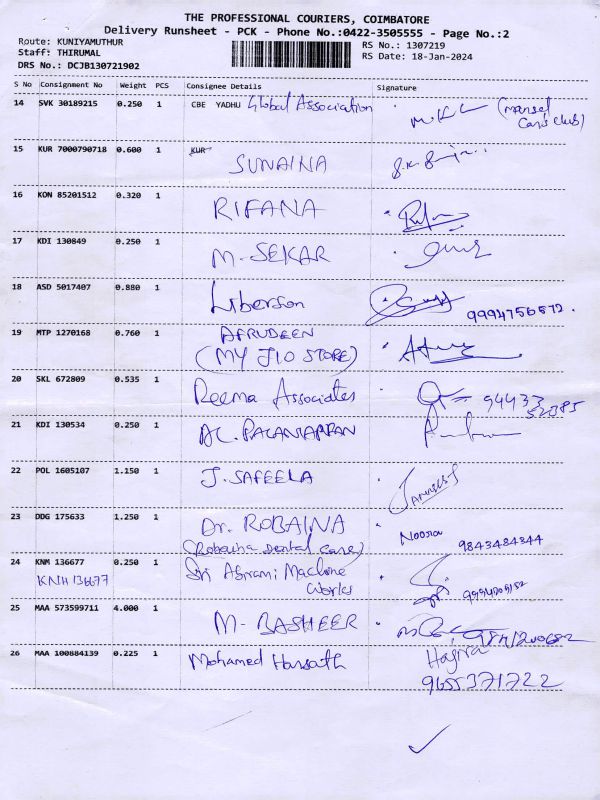 THE PROFESSIONAL COURIERS, COIMBATORE
Delivery Runsheet - PCK - Phone No.:0422-3505555 - Page No.:2
Route: KUNIYAMUTHUR RS No.: 1307219
Staff: THIRUMAL RS Date: 18-Jan-2024
DRS No.: DCJB130721902
S No Consignment No Weight PCS Consignee Details Signature
14 SVK 30189215 0.250 1 CBE YADHU Global Association
15 KUR 7000790718 0.600 1 KUR SUNAINA
16 KON 85201512 0.320 1 RIFANA
17 KDI 130849 0.250 1 M. SEKAR
18 ASD 5017407 0.880 1 Liberson
19 MTP 1270168 0.760 1 AFRUDEEN
(MY JIO STORE)
20 SKL 672809 0.535 1 Reema Associates 94433
52385
21 KDI 130534 0.250 1 AL. PALANIAPPAN
22 POL 1605107 1.150 1 J. SAFEELA
23 DDG 175633 1.250 1 Dr. ROBAINA
(Robaina Dental Care) 9843484344
24 KNM 136677 0.250 1 Sri Abirami Machine
KNH 136677 Works
25 MAA 573599711 4.000 1 M. BASHEER
26 MAA 100884139 0.225 1 Mohamed Harsath Hajira
9655371722